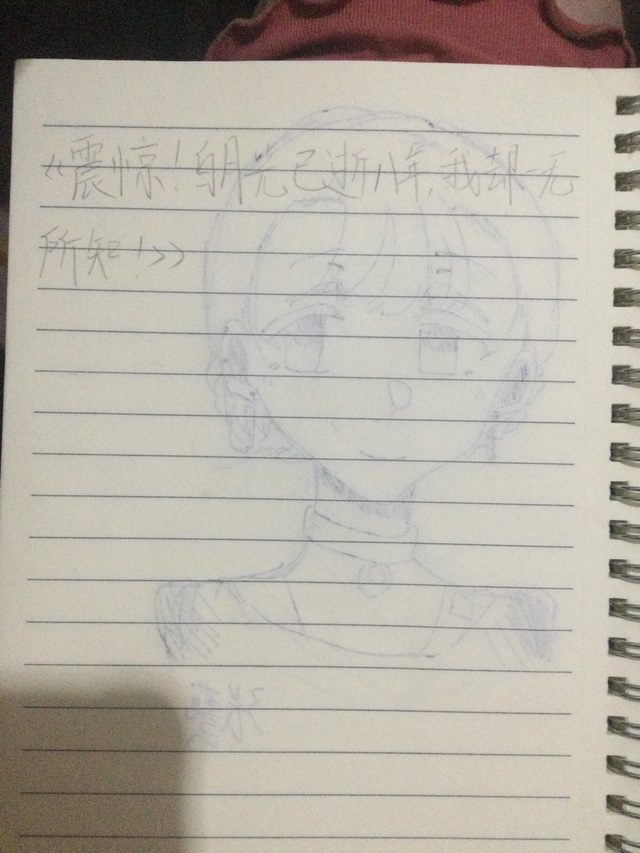 《震惊！明元已逝八年，我却一无
所知！》
张